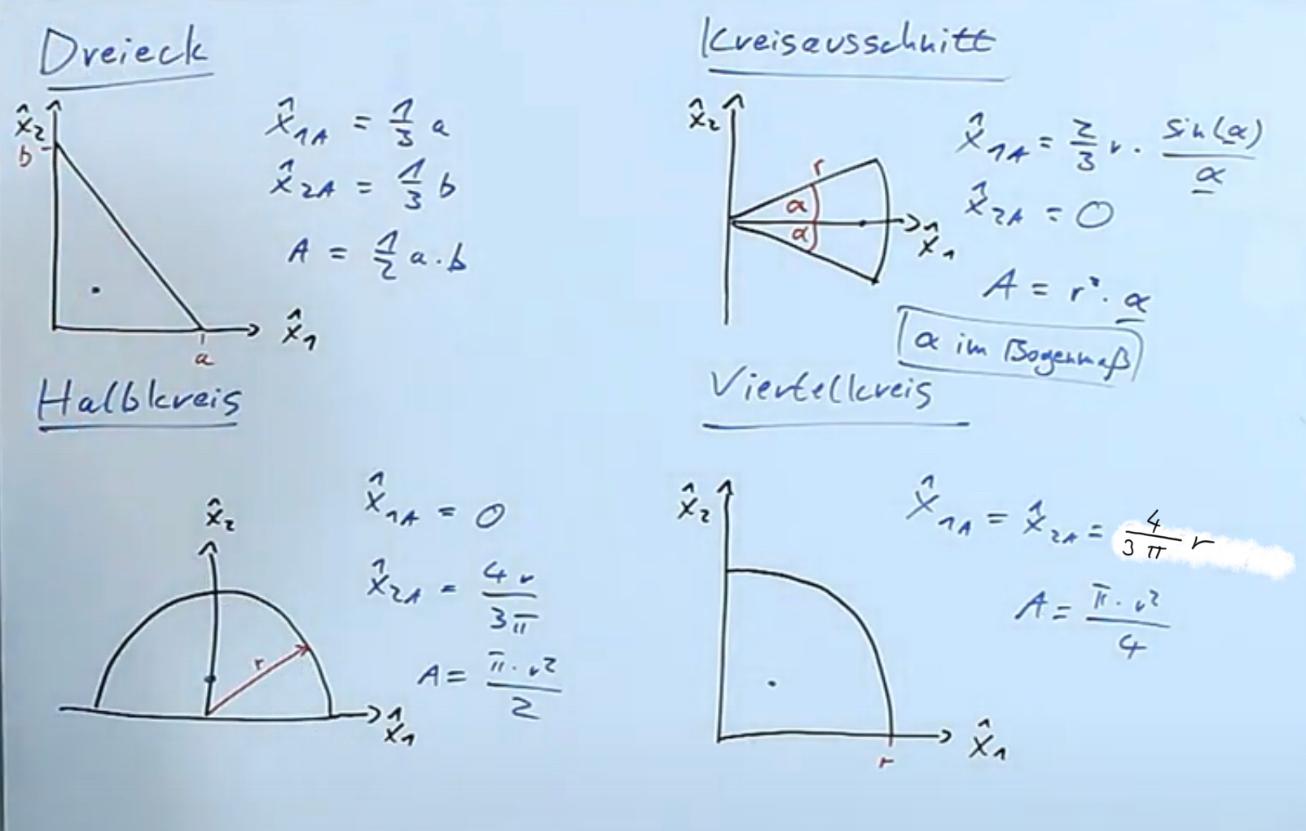 Dreieck
x̂₂
b
x̂₁ₐ = 1/3 a
x̂₂ₐ = 1/3 b
A = 1/2 a · b
x̂₁
a
Kreisausschnitt
x̂₂
r
α
α
x̂₁
x̂₁ₐ = 2/3 r · sin(α)/α
x̂₂ₐ = 0
A = r² · α
α im Bogenmaß
Halbkreis
x̂₂
r
x̂₁
x̂₁ₐ = 0
x̂₂ₐ = 4r/3π
A = π · r²/2
Viertelkreis
x̂₂
x̂₁ₐ = x̂₂ₐ = 4/3π r
A = π · r²/4
x̂₁
r